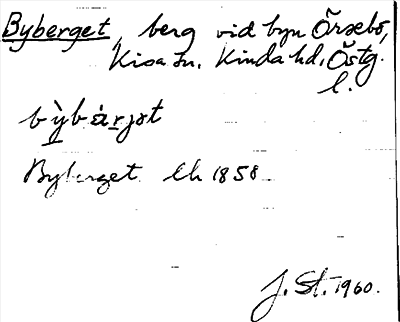 Byberget, berg vid byn Örsebo,
Kisa sn. Kinda hd, Östg.
l.
bỳbàrjət
Byberget Ek 1858
J. St. 1960.